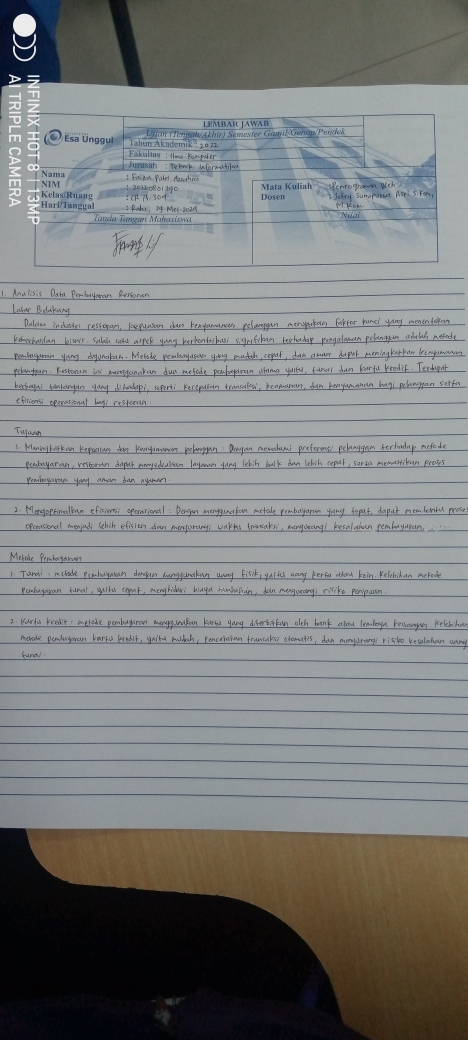 INFINIX HOT 8 - 13MP
AI TRIPLE CAMERA
Esa Unggul
LEMBAR JAWAB
Ujian (Tengah/Akhir) Semester Ganjil/Genap/Pendek
Tahun Akademik : 2022
Fakultas : Ilmu Komputer
Jurusan : Teknik Informatika
Nama : Putri
NIM
Kelas/Ruang
Hari/Tanggal : Rabu, 29 Mei 2024
Tanda Tangan Mahasiswa
Mata Kuliah : Pemrograman Web
Dosen : M.Kom
Nilai
1. Analisis Data Pembayaran Restoran
Latar Belakang
Dalam industri restoran, kepuasan dan kenyamanan pelanggan merupakan faktor kunci yang menentukan
keberhasilan bisnis. Salah satu aspek yang berkontribusi signifikan terhadap pengalaman pelanggan adalah metode
pembayaran yang digunakan. Metode pembayaran yang mudah, cepat, dan aman dapat meningkatkan kenyamanan
pelanggan. Restoran ini menggunakan dua metode pembayaran utama yaitu, tunai dan kartu kredit. Terdapat
berbagai tantangan yang dihadapi, seperti kecepatan transaksi, keamanan, dan kenyamanan bagi pelanggan serta
efisiensi operasional bagi restoran.
Tujuan
1. Meningkatkan kepuasan dan kenyamanan pelanggan : Dengan memahami preferensi pelanggan terhadap metode
pembayaran, restoran dapat menyediakan layanan yang lebih baik dan lebih cepat, serta memastikan proses
pembayaran yang aman dan nyaman.
2. Mengoptimalkan efisiensi operasional : Dengan menggunakan metode pembayaran yang tepat, dapat membantu proses
operasional menjadi lebih efisien dan mengurangi waktu transaksi, mengurangi kesalahan pembayaran,
Metode Pembayaran
1. Tunai : metode pembayaran dengan menggunakan uang fisik, yaitu uang kertas atau koin. Kelebihan metode
pembayaran tunai, yaitu cepat, menghindari biaya tambahan, dan mengurangi risiko penipuan.
2. Kartu kredit : metode pembayaran menggunakan kartu yang diterbitkan oleh bank atau lembaga keuangan. Kelebihan
metode pembayaran kartu kredit, yaitu mudah, pencatatan transaksi otomatis, dan mengurangi risiko kesalahan uang
tunai.